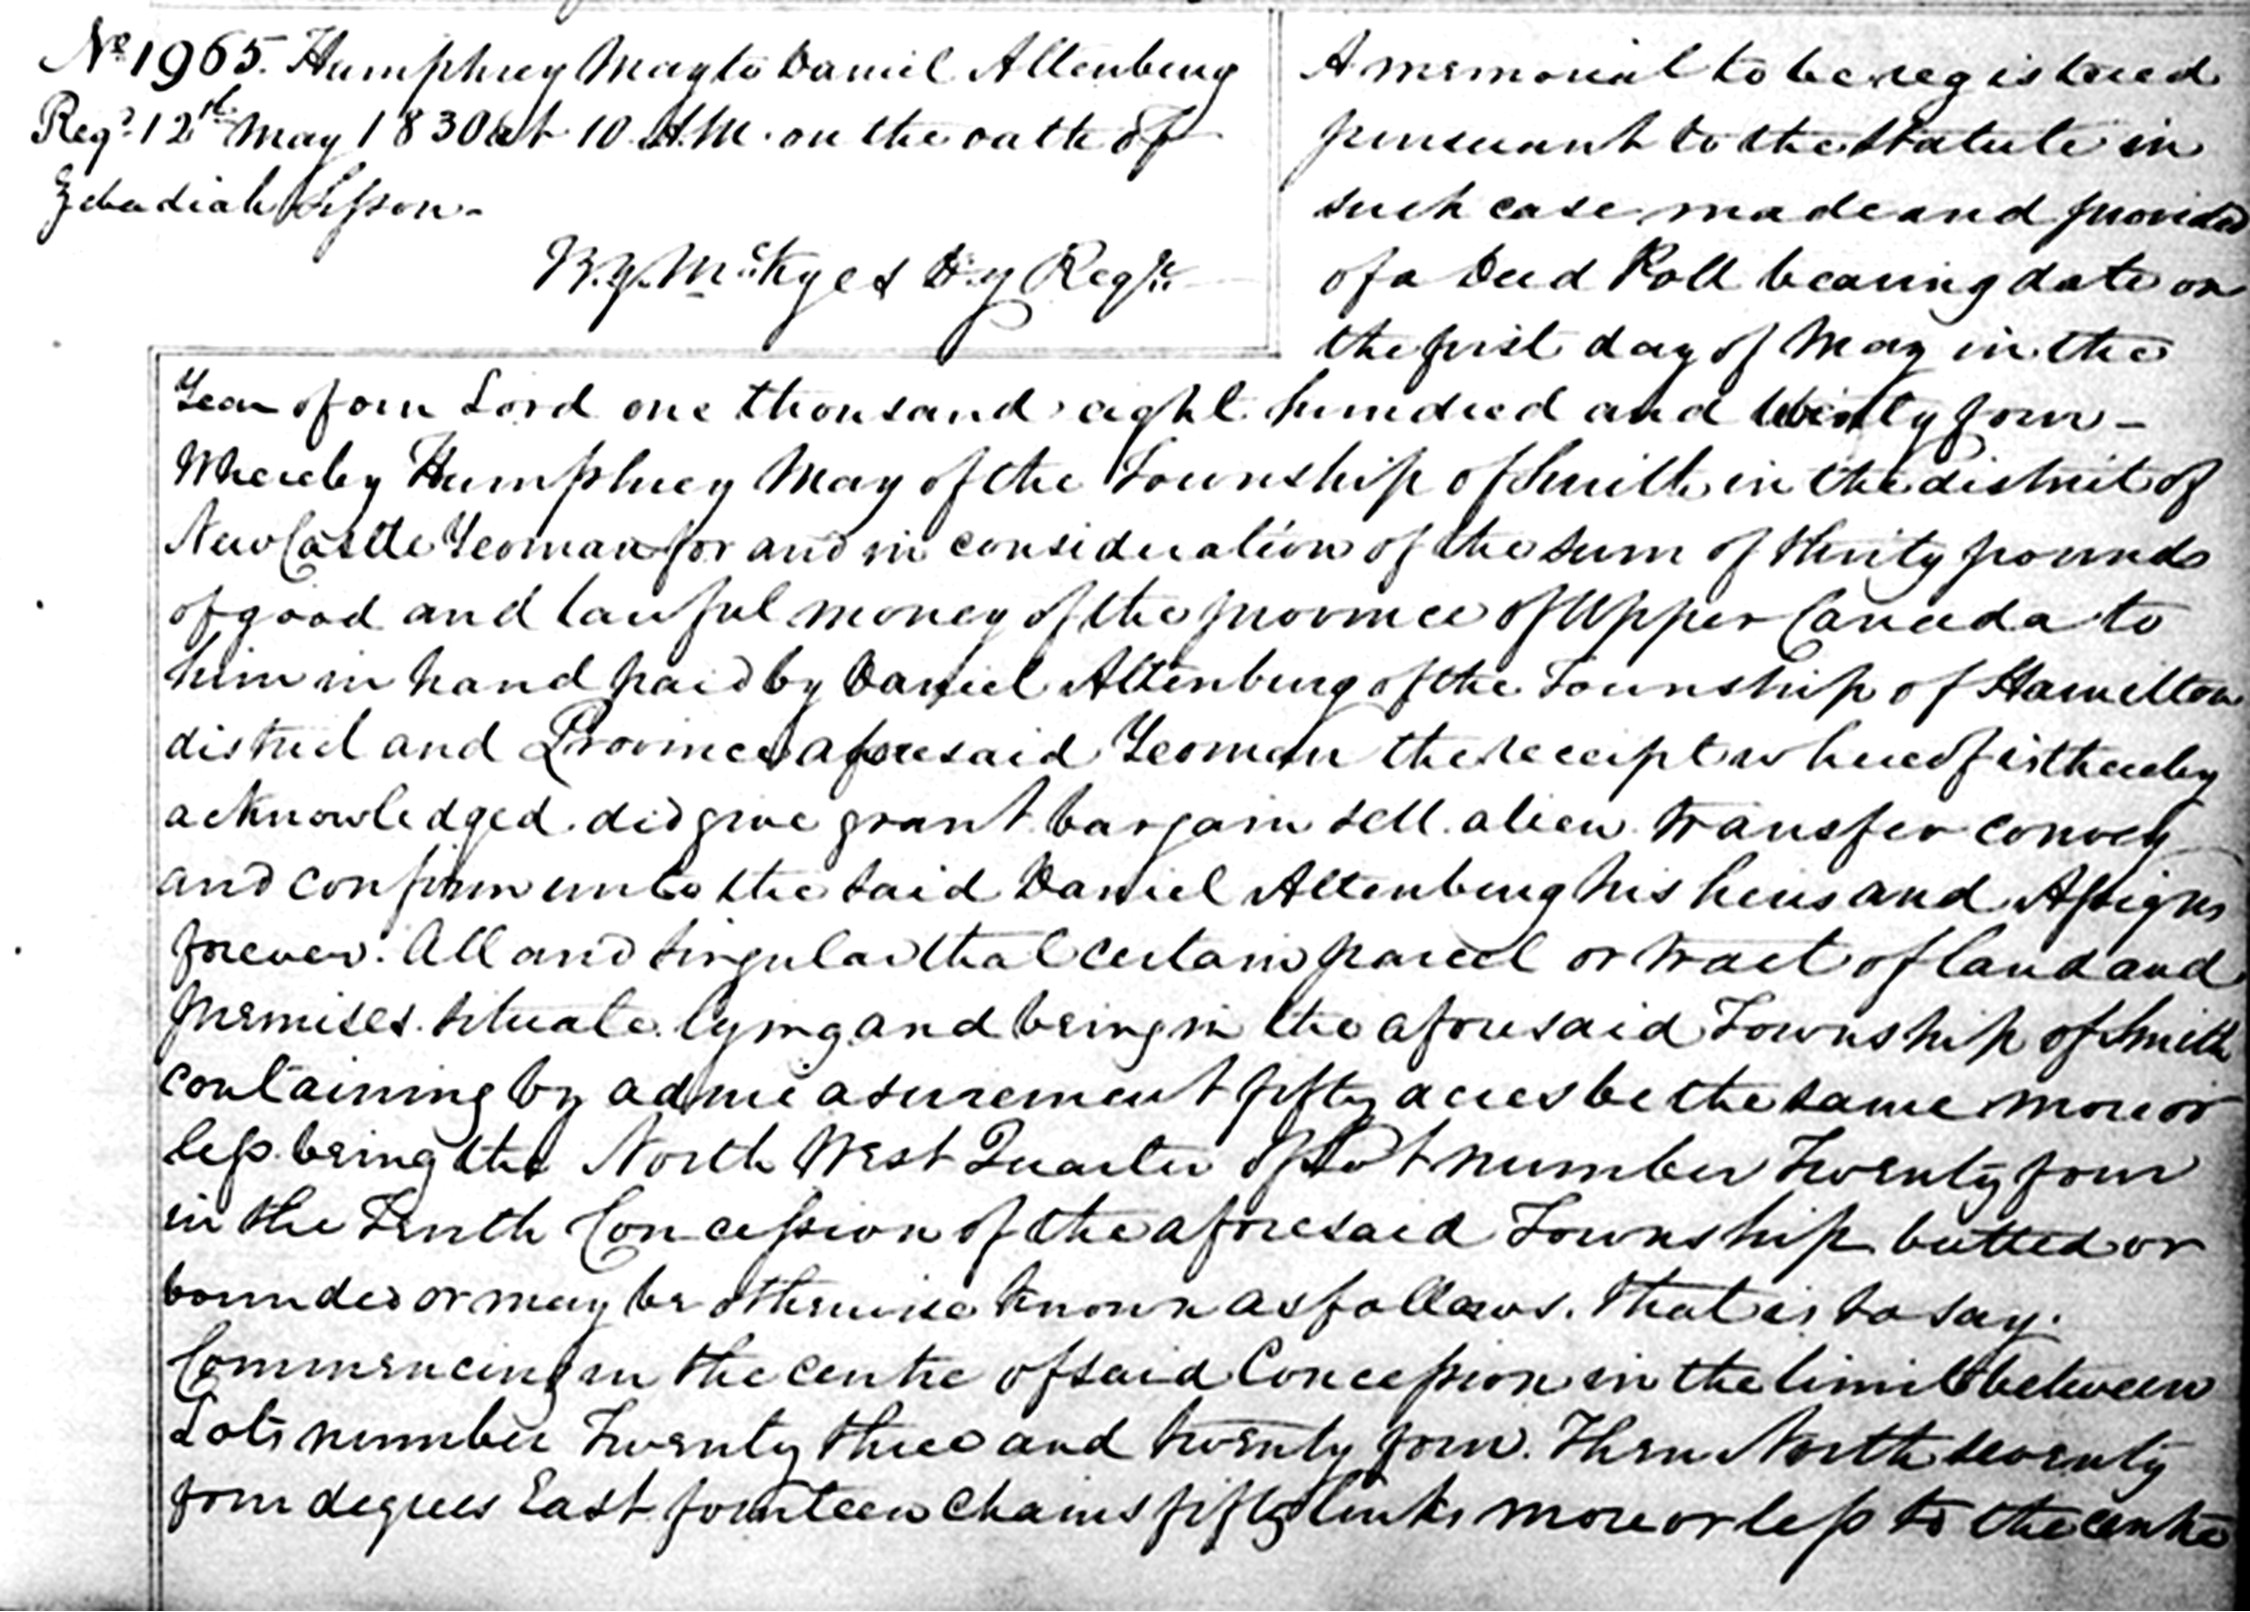 No 1965. Humphrey May to Daniel Altenburg
Regd 12th May 1830 at 10 A.M. on the oath of
Zebadiah Sisson-
McKyes Dy Regr.
A memorial to be registered
pursuant to the Statute in
such case made and provided
of a Deed Poll bearing date on
the first day of May in the
Year of our Lord one thousand eight hundred and twenty four-
Whereby Humphrey May of the Township of Smith in the district of
NewCastle Yeoman for and in consideration of the sum of thirty pounds
of good and lawful money of the province of Upper Canada to
him in hand paid by Daniel Altenburg of the Township of Hamilton
district and Province aforesaid Yeoman the receipt whereof is thereby
acknowledged. did give grant bargain sell alien transfer convey
and confirm unto the said Daniel Altenburg his heirs and Assigns
forever. All and singular that certain parcel or tract of land and
premises. situate. lying and being in the aforesaid Township of Smith
containing by admeasurement fifty acres be the same more or
less being the North West Quarter of Lot number Twenty four
in the Tenth Concession of the aforesaid Township butted or
bounded or may be otherwise known as follows. that is to say.
Commencing in the centre of said Concession in the limits between
Lots number Twenty three and twenty four. Then North seventy
four degrees East fourteen chains fifty links more or less to the centre